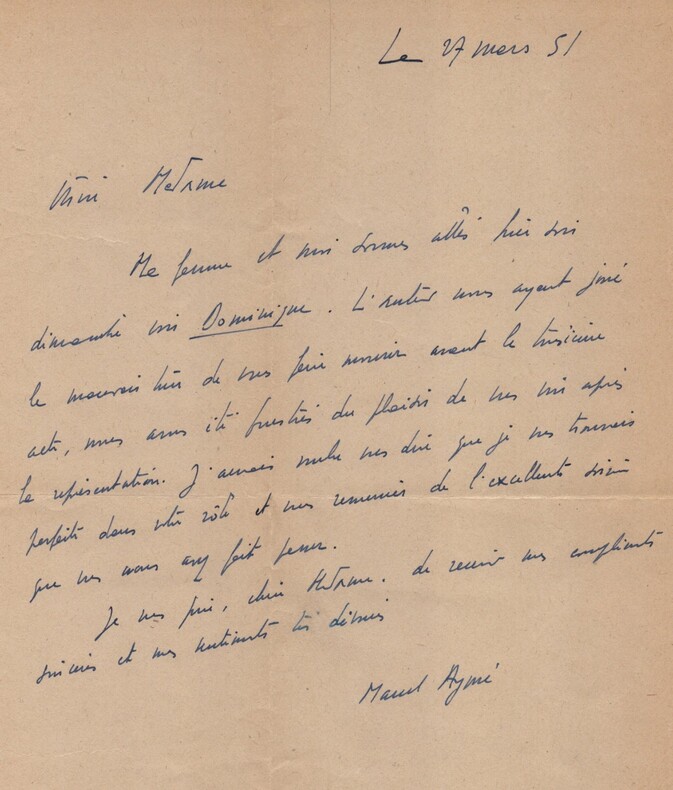 Le 27 mars 51
Chère Madame
Ma femme et moi sommes allés hier soir
dimanche voir Dominique. L'auteur nous ayant joué
le mauvais tour de vous faire mourir avant le troisième
acte, nous avons été frustrés du plaisir de vous voir après
la représentation. J'aurais voulu vous dire que je vous trouvais
parfaite dans votre rôle et vous remercier de l'excellente soirée
que vous nous avez fait passer.
Je vous prie, chère Madame, de recevoir mes compliments
sincères et mes sentiments très dévoués
Marcel Aymé